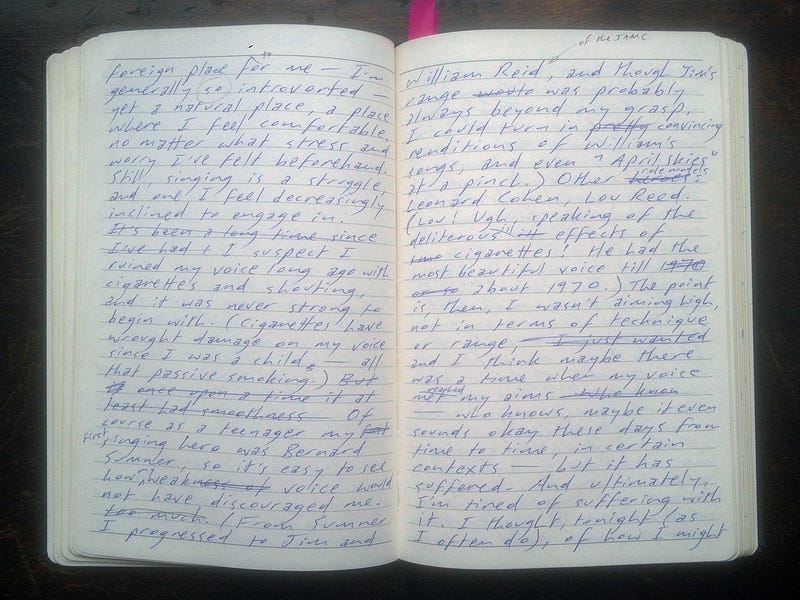 to
foreign place for me — I'm
generally (so) introverted —
yet a natural place, a place
where I feel comfortable,
no matter what stress and
worry I've felt beforehand.
Still, singing is a struggle,
and one I feel decreasingly
inclined to engage in.
It's been a long time since
I've had t I suspect I
ruined my voice long ago with
cigarettes and shouting,
and it was never strong to
begin with. (Cigarettes have
wrought damage on my voice
since I was a child, — all
that passive smoking.) But
once upon a time it at
least had smoothness Of
course as a teenager my
first singing hero was Bernard
Sumner, so it's easy to see
how weakness of voice would
not have discouraged me.
too much. (From Sumner
I progressed to Jim and
of the JAMC
William Reid, and though Jim's
range was probably
always beyond my grasp,
I could turn in pretty convincing
renditions of William's
songs, and even "April Skies"
at a pinch.) Other heroes role models:
Leonard Cohen, Lou Reed.
(Lou! Ugh, speaking of the
deliterous effects of
cigarettes! He had the
most beautiful voice till 1970
or so about 1970.) The point
is, then, I wasn't aiming high,
not in terms of technique
or range, — I just wanted
and I think maybe there
was a time when my voice
met reached my aims — who know
— who knows, maybe it even
sounds okay these days from
time to time, in certain
contexts — but it has
suffered. And ultimately,
I'm tired of suffering with
it. I thought, tonight (as
I often do), of how I might